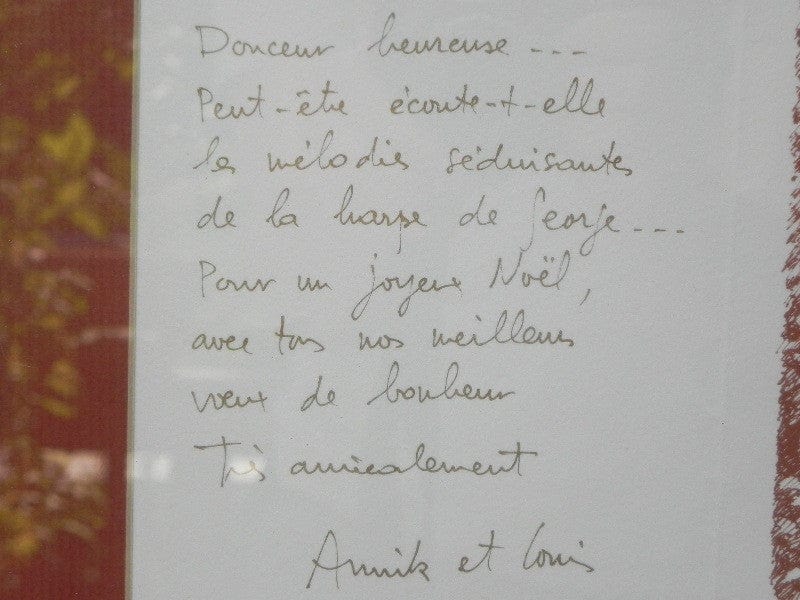 Douceur heureuse ---
Peut-être écoute-t-elle
les mélodies séduisantes
de la harpe de George ---
Pour un joyeux Noël,
avec tous nos meilleurs
vœux de bonheur
Très amicalement
Annik et Louis